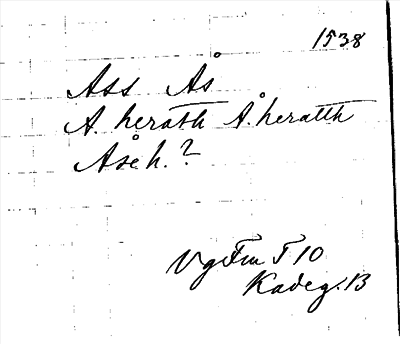 1538
Ass Ås
A. herath Å. heratth
Åse h.?
Vg Fru T 10
Kadeg. B